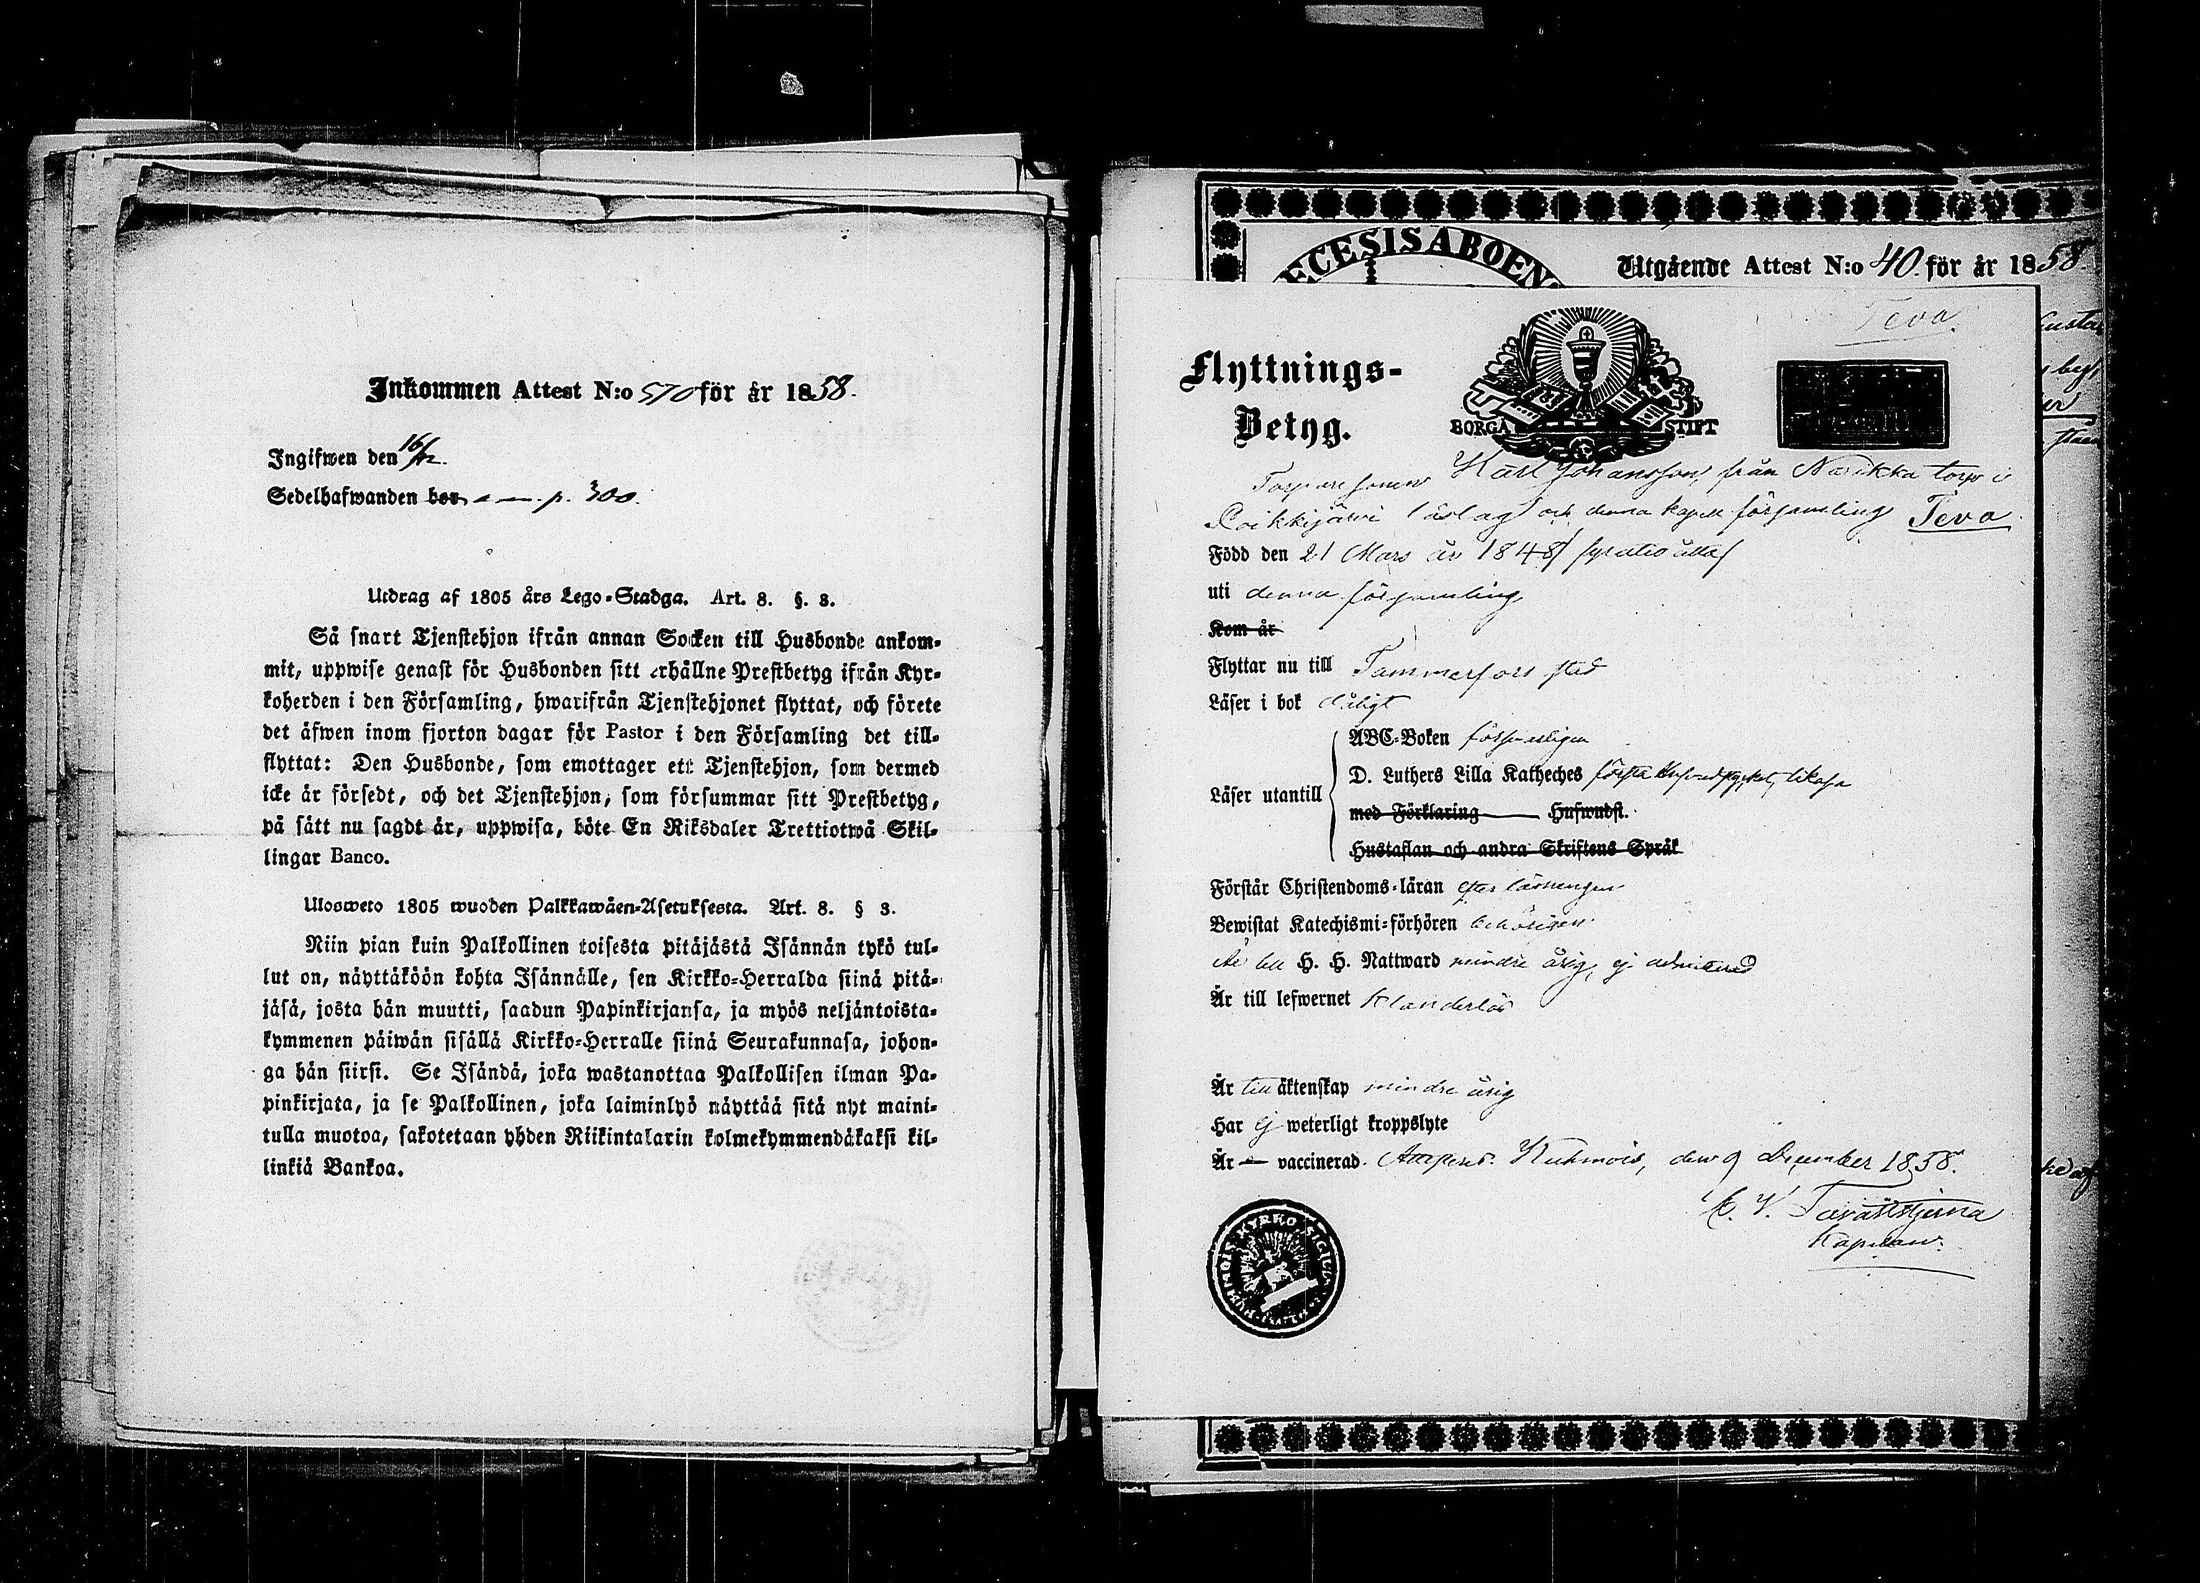 Inkommen Attest N:o 570 för år 1858.
Ingifwen den 16/12.
Sedelhafwanden bor p. 300.
Utdrag af 1805 års Lego-Stadga. Art. 8. §. 8.
Så snart Tjenstehjon ifrån annan Socken till Husbonde ankom-
mit, uppwise genast för Husbonden sitt erhållne Prestbetyg ifrån Kyr-
koherden i den Församling, hwarifrån Tjenstehjonet flyttat, och förete
det äfwen inom fjorton dagar för Pastor i den Församling det till-
flyttat: Den Husbonde, som emottager ett Tjenstehjon, som dermed
icke är försedt, och det Tjenstehjon, som försummar sitt Prestbetyg,
på sätt nu sagdt är, uppwisa, böte En Riksdaler Trettiotwå Skil-
lingar Banco.
Ulosweto 1805 wuoden Palkkawäen-Asetuksesta. Art. 8. § 8.
Niin pian kuin Palkollinen toisesta pitäjästä Isännän tykö tul-
lut on, näyttäköön kohta Isännälle, sen Kirkko-Herralda siinä pitä-
jäsä, josta hän muutti, saadun Papinkirjansa, ja myös neljäntoista-
kymmenen päiwän sisällä Kirkko-Herralle siinä Seurakunnasa, johon-
ga hän siirsi. Se Isändä, joka wastanottaa Palkollisen ilman Pa-
pinkirjata, ja se Palkollinen, joka laiminlyö näyttää sitä nyt maini-
tulla muotoa, sakotetaan yhden Riikintalarin kolmekymmendäkaksi kil-
linkiä Bankoa.
ECESIS ABOEN
Utgående Attest N:o 40 för år 1858.
Teva.
Flyttnings-
Betyg.
BORGÅ STIFT
Torparesonen Karl Johansson, från Narikka torp i
Poikkijärvi löslag och denna kapell församling Teva
Född den 21 Mars år 1848 / fyratio åtta /
uti denna församling,
Kom år
Flyttar nu till Tammerfors stad
Läser i bok dåligt
ABC-Boken försvarligen
D. Luthers Lilla Katheches första Hufvudstycket, likaså
med Förklaring Hufwudst.
Hustaflan och andra Skriftens Språk
Läser utantill
Förstår Christendoms-läran efter läsningen
Bewistat Katechismi-förhören behörigen
Är till H. H. Nattward mindre årig, ej admitterad
Är till lefwernet klanderlös
Är till äktenskap minderårig
Har ej weterligt kroppslyte
Är vaccinerad. Attesterar Kuhmois, den 9 December 1858.
Tavaststjerna
Kapellan.